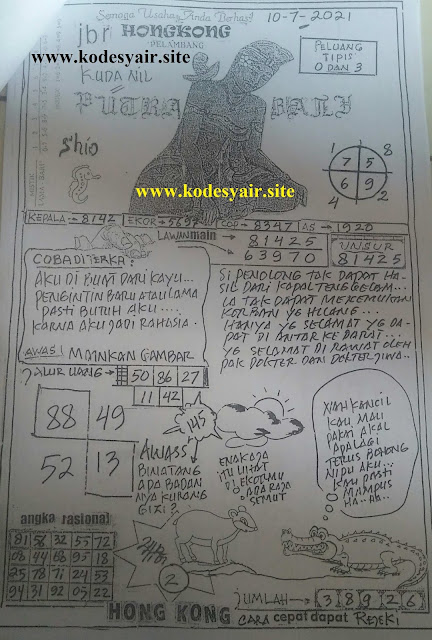 Semoga Usaha Anda Berhasil
10-7-2021
jbr HONGKONG
PELAMBANG
www.kodesyair.site
KUDA NIL
PUTRA BALI
PELUANG
TIPIS
0 DAN 3
Shio
www.kodesyair.site
1 8
7 5
6 9
4 2
KEPALA 8142 EKOR 5697 COP 8347 AS 1920
LAWAN main 81425
63970
UNSUR
81425
COBA DI TERKA:
AKU DI BUAT DARI KAYU...
PENGINTIN BARU ATAU LAMA
PASTI BUTUH AKU....
KARNA AKU JADI RAHASIA.
SI PENOLONG TAK DAPAT HA-
SIL DARI KAPAL TENGGELAM...
IA TAK DAPAT MENEMUKAN
KORBAN YG HILANG...
HANYA YG SELAMAT YG DA-
PAT DI ANTAR KE DARAT...
YG SELAMAT DI RAWAT OLEH
PAK DOKTER DAN DOKTER JIWA..
AWAS! MAINKAN GAMBAR
JALUR UANG 50 86 27
11 42
88 49
52 13
145
AWASS
BINATANG
APA BADAN
NYA KURANG
GIZI?
ENAK AJA
ITU LIHAT
DI EKORMU
ADA RAJA
SEMUT
XIAH KANCIL
KAU MAU
PAKAI AKAL
APALAGI
TERUS BOHONG
NIPU AKU...
KAU PASTI
MAMPUS
HA..HA..
angka rasional
81 58 32 55 72
08 44 68 95 18
25 78 71 24 53
94 31 92 05 22
2
JUMLAH 3 8 9 2 6
HONG KONG CARA cepat dapat REJEKI